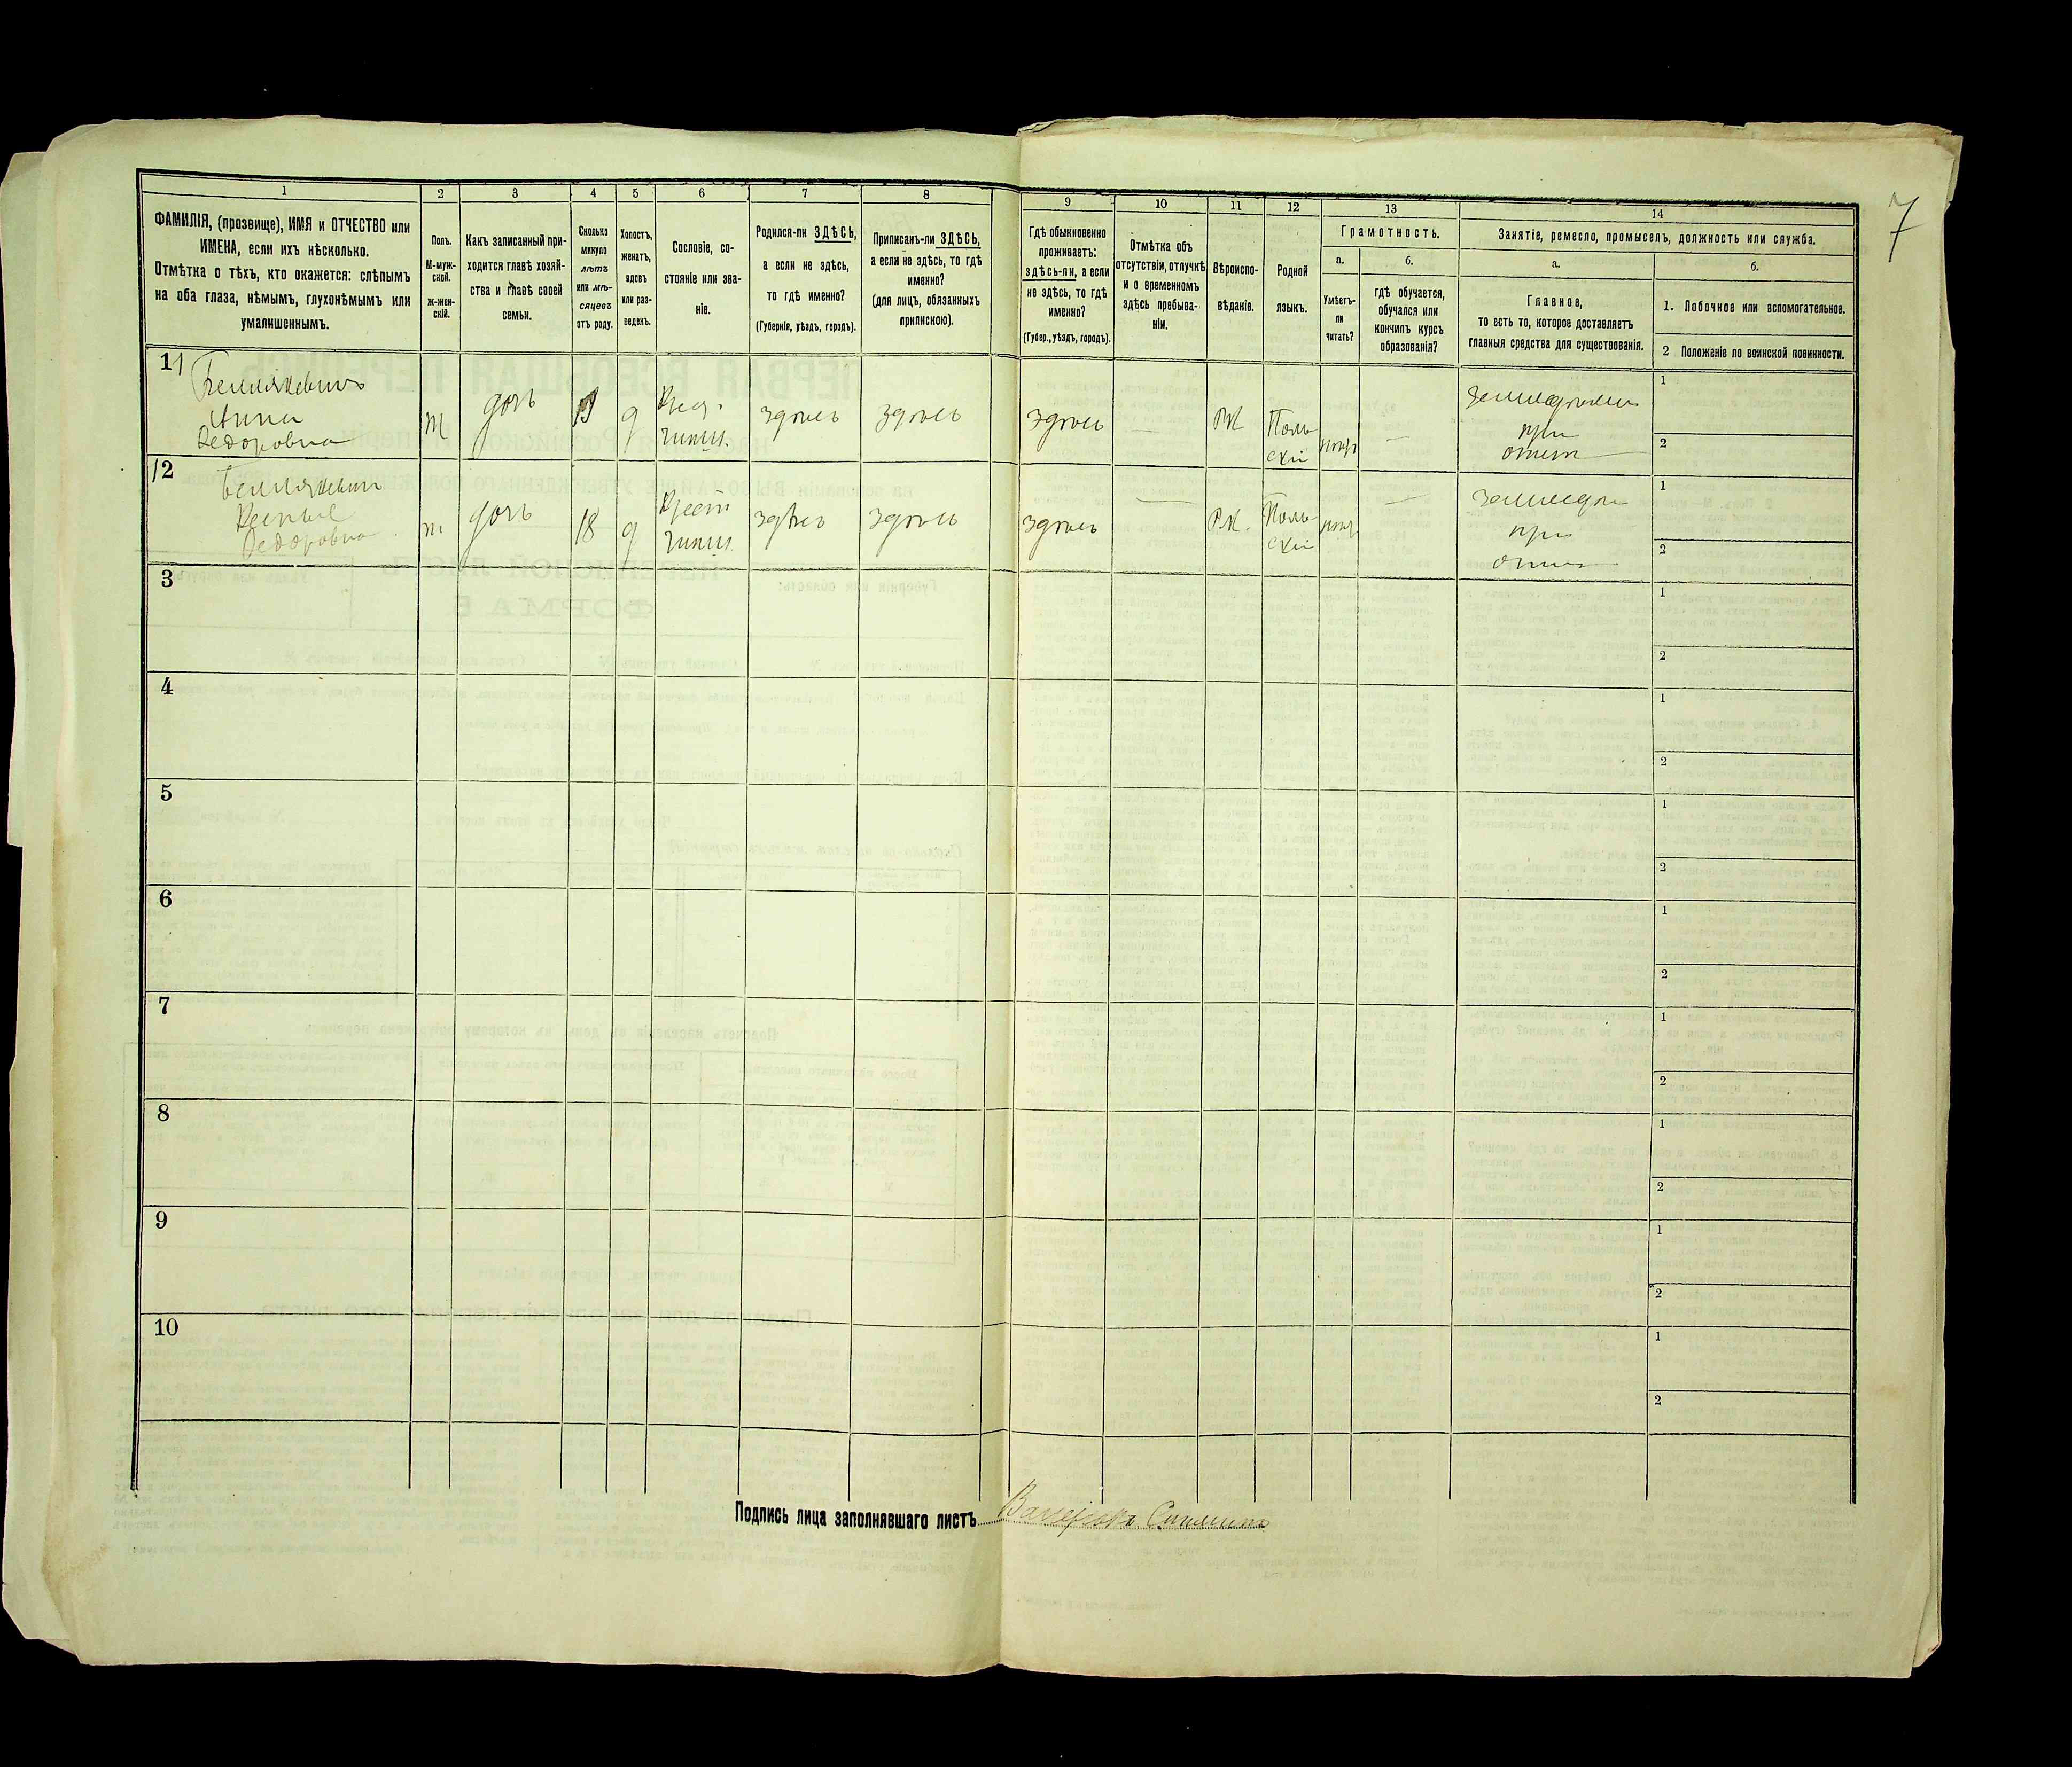 7
1
ФАМИЛІЯ, (прозвище), ИМЯ и ОТЧЕСТВО или
ИМЕНА, если ихъ нѣсколько.
Отмѣтка о тѣхъ, кто окажется: слѣпымъ
на оба глаза, нѣмымъ, глухонѣмымъ или
умалишеннымъ.
2
Полъ.
М-муж-
ской.
ж-жен-
скій.
3
Какъ записанный при-
ходится главѣ хозяй-
ства и главѣ своей
семьи.
4
Сколько
минуло
лѣтъ
или мѣ-
сяцевъ
отъ роду.
5
Холостъ,
женатъ,
вдовъ
или раз-
веденъ.
6
Сословіе, со-
стояніе или зва-
ніе.
7
Родился-ли ЗДѢСЬ,
а если не здѣсь,
то гдѣ именно?
(Губернія, уѣздъ, городъ).
8
Приписанъ-ли ЗДѢСЬ,
а если не здѣсь, то гдѣ
именно?
(для лицъ, обязанныхъ
припискою).
9
Гдѣ обыкновенно
проживаетъ:
здѣсь-ли, а если
не здѣсь, то гдѣ
именно?
(Губер., уѣздъ, городъ).
10
Отмѣтка объ
отсутствіи, отлучкѣ
и о временномъ
здѣсь пребыва-
ніи.
11
Вѣроиспо-
вѣданіе.
12
Родной
языкъ.
13
Грамотность.
а.
Умѣетъ-
ли
читать?
б.
гдѣ обучается,
обучался или
кончилъ курсъ
образованія?
14
Занятіе, ремесло, промыселъ, должность или служба.
а.
Главное,
то есть то, которое доставляетъ
главныя средства для существованія.
б.
1. Побочное или вспомогательное.
2 Положеніе по воинской повинности.
11
Анна
Федоровна
ж
дочь
д
здѣсь
здѣсь
здѣсь
—
РК
Поль
скій
—
при
1
2
12
Федоровна
ж
дочь
18
д
здѣсь
здѣсь
здѣсь
—
РК.
Поль
скій
—
при
1
2
3
1
2
4
1
2
5
1
2
6
1
2
7
1
2
8
1
2
9
1
2
10
1
2
Подпись лица заполнявшаго листъ